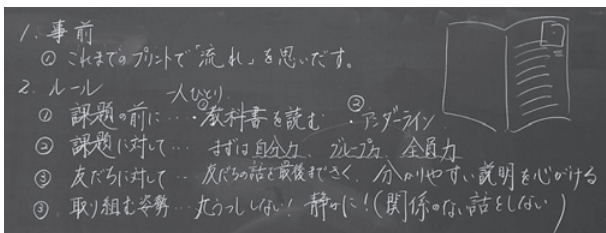 1. 事前
① これまでのプリントで「流れ」を思いだす。
2. ルール
一人ひとり
① 課題の前に… ・①教科書を読む ・②アンダーライン
② 課題に対して… まずは自分力、グループ力、全員力
③ 友だちに対して… 友だちの話を最後まできく、分かりやすい説明を心がける
③ 取り組む姿勢… 丸うつししない! 静かに!(関係のない話をしない)